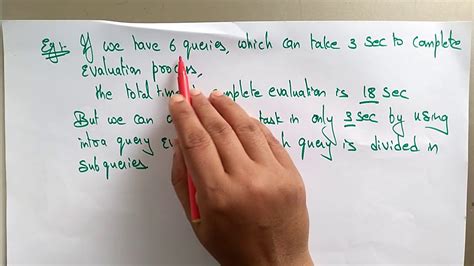 Eg:- If we have 6 queries, which can take 3 sec to complete
Evaluation process,
the total time complete evaluation is 18 sec
But we can task in only 3 sec by using
intra query query is divided in
subqueries